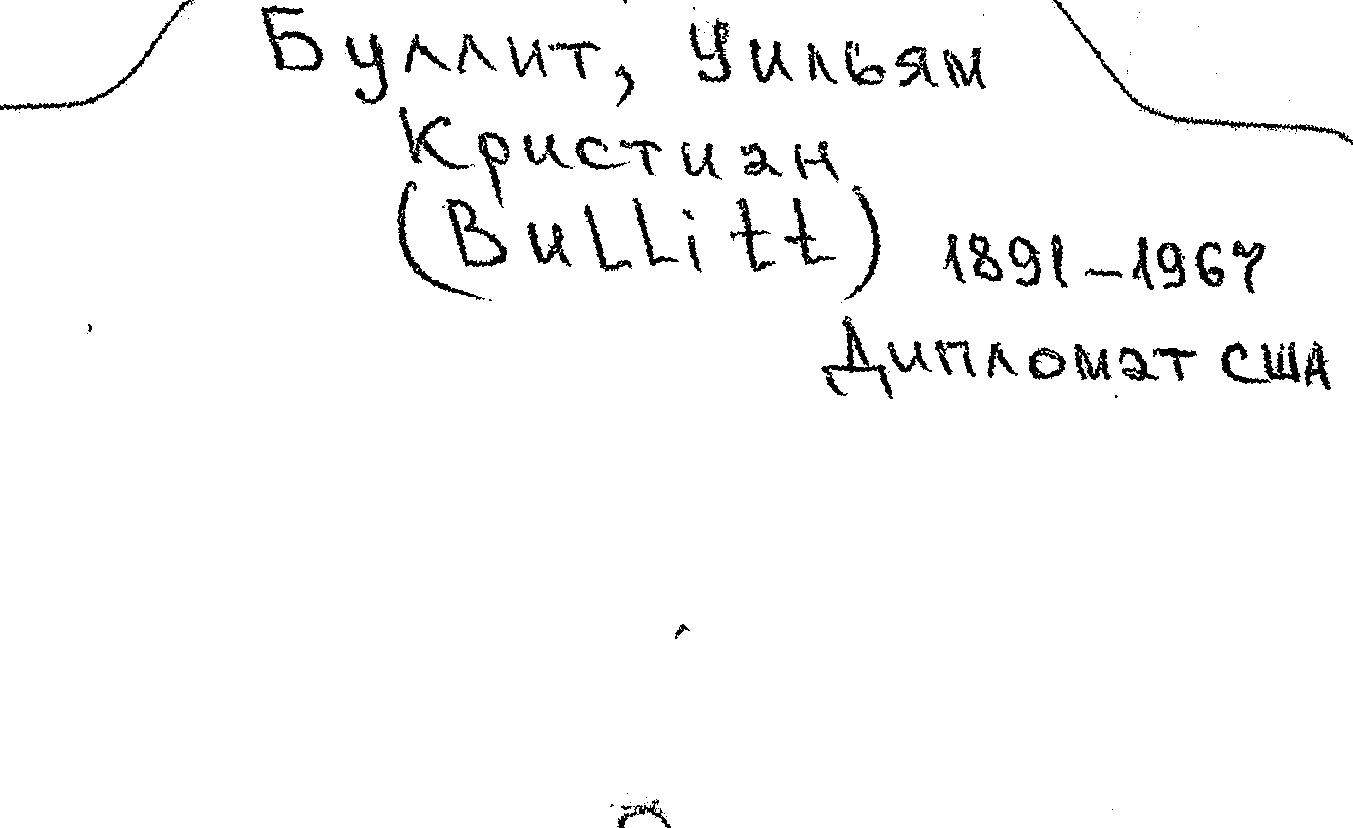 Буллит, Уильям
Кристиан
(Bullitt) 1891-1967
Дипломат США